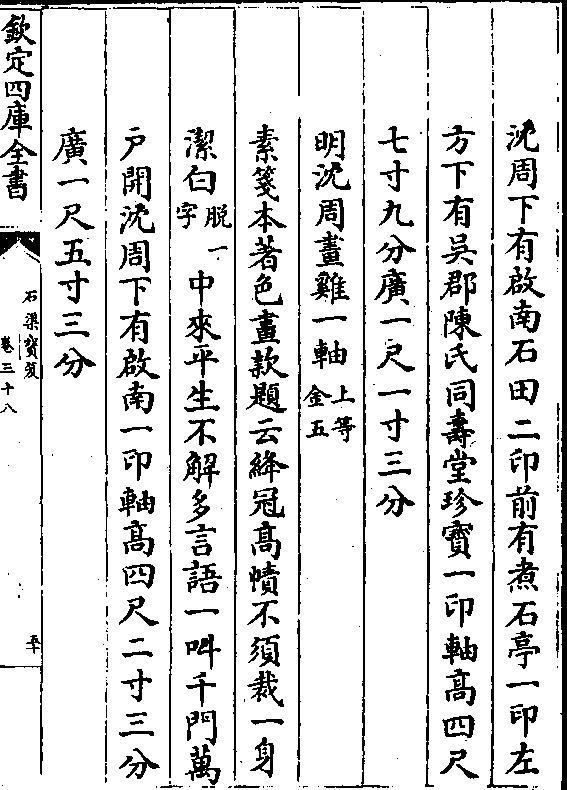 沈周下有啟南石田二印前有煮石亭一印左
方下有吳郡陳氏同壽堂珍寶一印軸髙四尺
七寸九分廣一尺一寸三分
明沈周畫雞一軸上等金五
素箋本著色畫款題云絳冠髙幘不須裁一身
潔白脱一字中來平生不解多言語一呌千門萬
户開沈周下有啟南一印軸髙四尺二寸三分
廣一尺五寸三分
欽定四庫全書
石渠寳笈
卷三十八